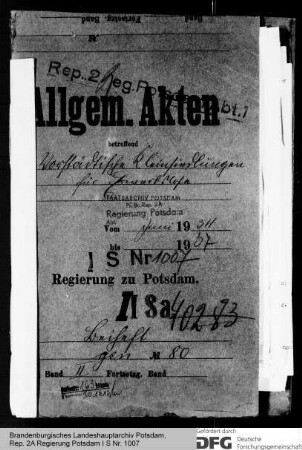 Fortsetzg. Band
Rep. 2A Reg. Pots Abt. 1
Allgem. Akten
betreffend
Vorstädtische Kleinsiedlungen
für
STAATSARCHIV POTSDAM
Pr. Br. Rep. 2A
Regierung Potsdam
Vom Juni 1934
bis 1937
I S Nr 1007
Regierung zu Potsdam.
Beiheft
gen № 80
Band II. Fortsetzg. Band
Brandenburgisches Landeshauptarchiv Potsdam,
Rep. 2A Regierung Potsdam I S Nr. 1007
Gefördert durch
DFG Deutsche
Forschungsgemeinschaft